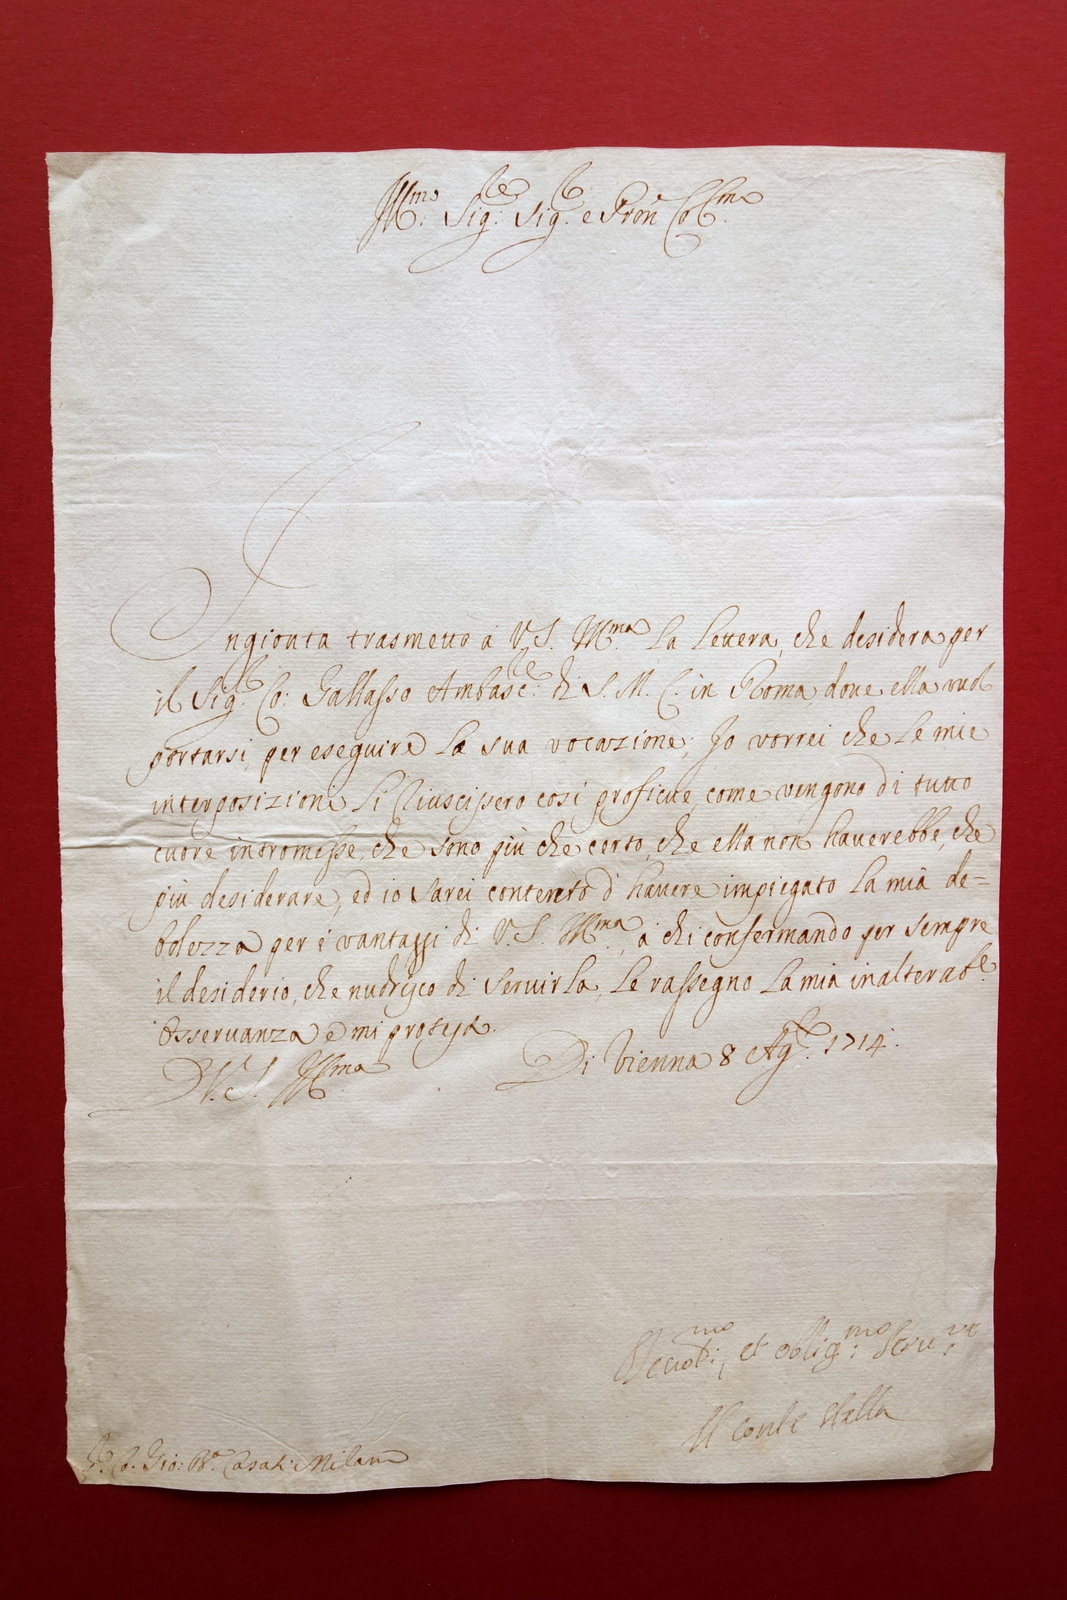 Ill.mo Sig.re Sig.r e Pron Coll.mo
Ingionta trasmetto à V.S. Ill.ma la lettera, che desidera per
il Sig.r Co: Gallasso Ambasc.re di S. M. C. in Roma, dove ella vuol
portarsi per eseguire la sua vocazione; Io vorrei che le mie
interposizioni li riuscissero così proficue, come vengono di tutto
cuore intromesse, che sono più che certo, che ella non haverebbe, che
più desiderare, ed io sarei contento d'havere impiegato la mia de=
bolezza per i vantaggi di V.S. Ill.ma, à chi confermando per sempre
il desiderio, che nudrisco di servirla, le rassegno la mia inalterab.e
osservanza e mi protesto.
D V. S. Ill.ma Di Vienna 8 Ag.to 1714.
et oblig.mo Seru.re
Il Conte Stella
S.r Co. Gio: B.a Casati Milano